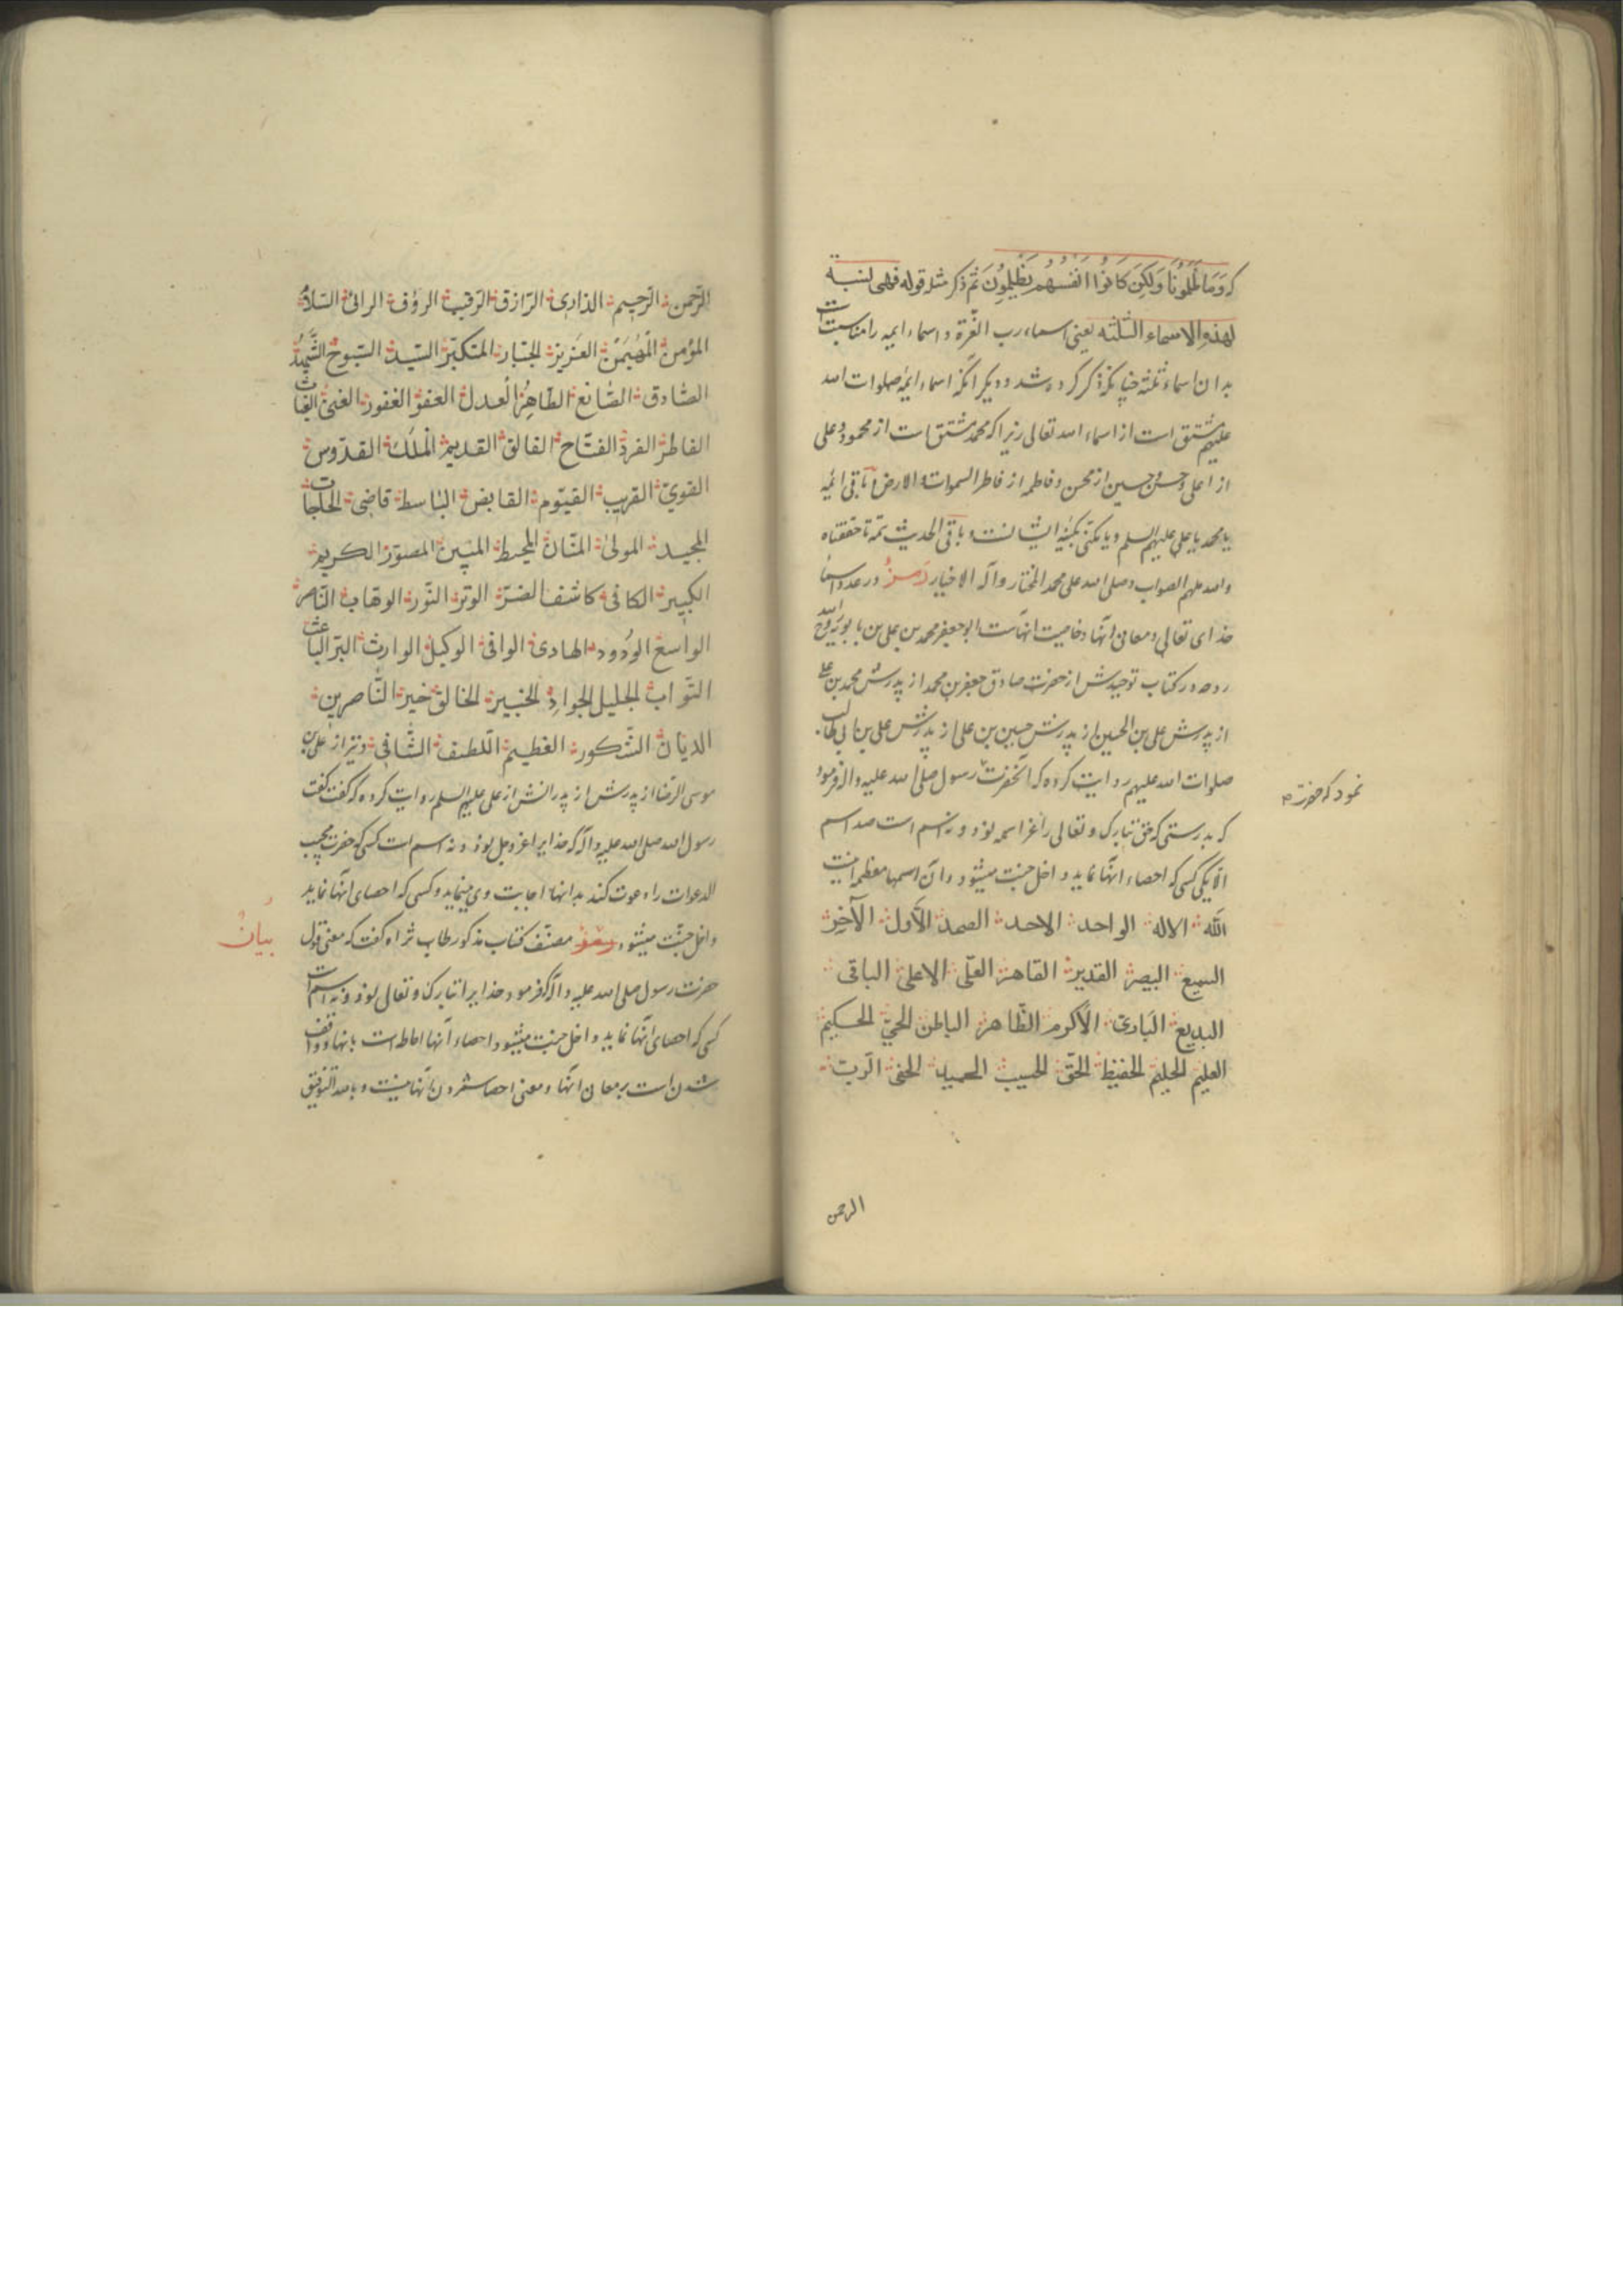 که وَمَا ظَلَمُونَا وَلَكِن كَانُوا اَنفُسَهُم يَظْلِمُونَ ثم ذکر مثله قوله فهی لنسبة
لهذه الاسماء الثلثه یعنی اسماء رب العزة و اسماء ایمه را مناسبت است
بدان اسماء ثلثه چنانکه ذکر کرده شد و دیگر آنکه اسماء ایمه صلوات الله
علیهم مشتق است از اسماء الله تعالی زیرا که محمد مشتق است از محمود و علی
از اعلی و حسن و حسین از محسن و فاطمه از فاطر السموات و الارض و باقی ایمه
یا محمد یا علی علیهم السلم و یا مکنی بکنیه ایشانست و باقی الحدیث
والله ملهم الصواب و صلی الله علی محمد المختار و آله الاخیار رمز در عدد اسماء
خدای تعالی و معانی آنها و خاصیت آنهاست ابو جعفر محمد بن علی بن بابویه
روحه در کتاب توحیدش از حضرت صادق جعفر بن محمد از پدرش محمد بن علی
از پدرش علی بن الحسین از پدرش حسین بن علی از پدرش علی بن ابی طالب
صلوات الله علیهم روایت کرده که آنحضرت رسول صلی الله علیه و آله فرمود
نمود که حضرت
که بدرستی که حق تبارک و تعالی را عز اسمه نود و نه اسم است صد اسم
الا یکی کسی که احصاء آنها نماید داخل جنت میشود و آن اسمها معظمه اینست
الله الاله الواحد الاحد الصمد الاول الآخر
السمیع البصیر القدیر القاهر العلی الاعلی الباقی
البدیع الباری الاکرم الظاهر الباطن الحی الحکیم
العلیم الحلیم الحفیظ الحق الحسیب الحمید الحفی الرب
الرحمن
الرحمن الرحیم الذاری الرازق الرقیب الرؤف الرائی السلام
المؤمن المهیمن العزیز الجبار المتکبر السید السبوح الشهید
الصادق الصانع الطاهر العدل العفو الغفور الغنی الغیاث
الفاطر الفرد الفتاح الفالق القدیم الملک القدوس
القوی القریب القیوم القابض الباسط قاضی الحاجات
المجید المولی المنان المحیط المبین المصور الکریم
الکبیر الکافی کاشف الضر الوتر النور الوهاب الناصر
الواسع الودود الهادی الوافی الوکیل الوارث البر الباعث
التواب الجلیل الجواد الخبیر الخالق خیر الناصرین
الدیان الشکور العظیم اللطیف الشافی و نیز از علی بن
موسی الرضا از پدرش از پدرانش از علی علیهم السلم روایت کرده که گفت گفت
رسول الله صلی الله علیه و آله که خدایرا عز و جل نود و نه اسم است کسی که حضرت مجیب
الدعوات را دعوت کند بدانها اجابت وی مینماید و کسی که احصای آنها نماید
داخل جنت میشود مصنف کتاب مذکور طاب ثراه گفت که معنی قول
بیان
حضرت رسول صلی الله علیه و آله که فرمود خدایرا تبارک و تعالی نود و نه اسم است
کسی که احصای آنها نماید داخل جنت میشود احصاء آنها احاطه است بآنها و واقف
شدن است بر معانی آنها و معنی احصا شمردن آنها نیست و بالله التوفیق